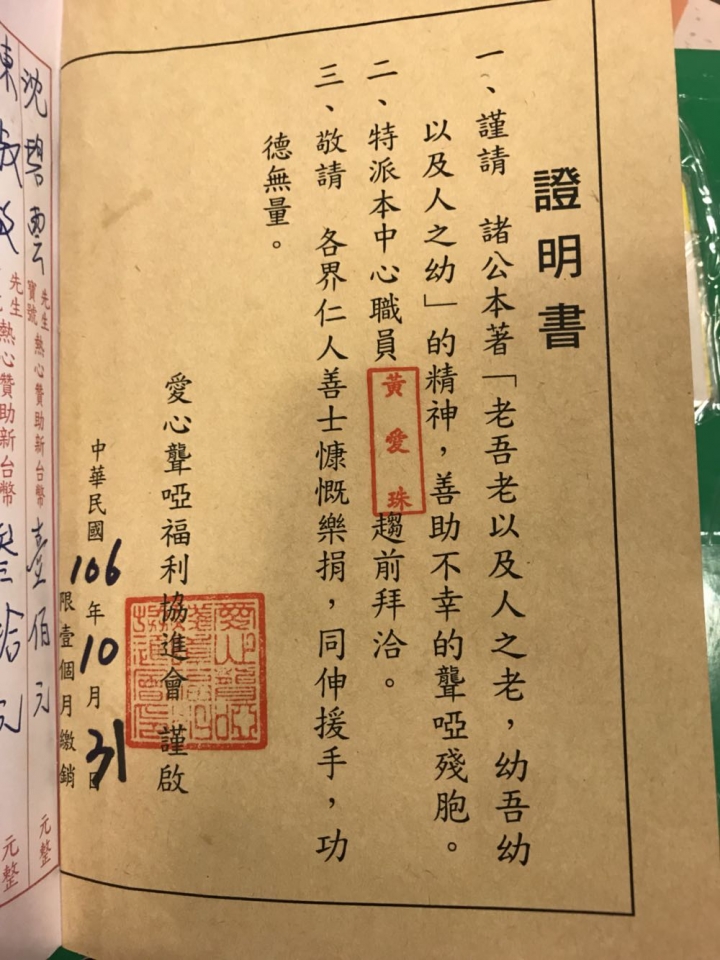 證明書
一、謹請　諸公本著「老吾老以及人之老，幼吾幼
以及人之幼」的精神，善助不幸的聾啞殘胞。
二、特派本中心職員黃愛珠趨前拜洽。
三、敬請　各界仁人善士慷慨樂捐，同伸援手，功
德無量。
愛心聾啞福利協進會　謹啟
中華民國106年10月31日
限壹個月繳銷
沈碧雲先生寶號熱心贊助新台幣壹佰元元整
陳淑先生熱心贊助新台幣叁拾元元整